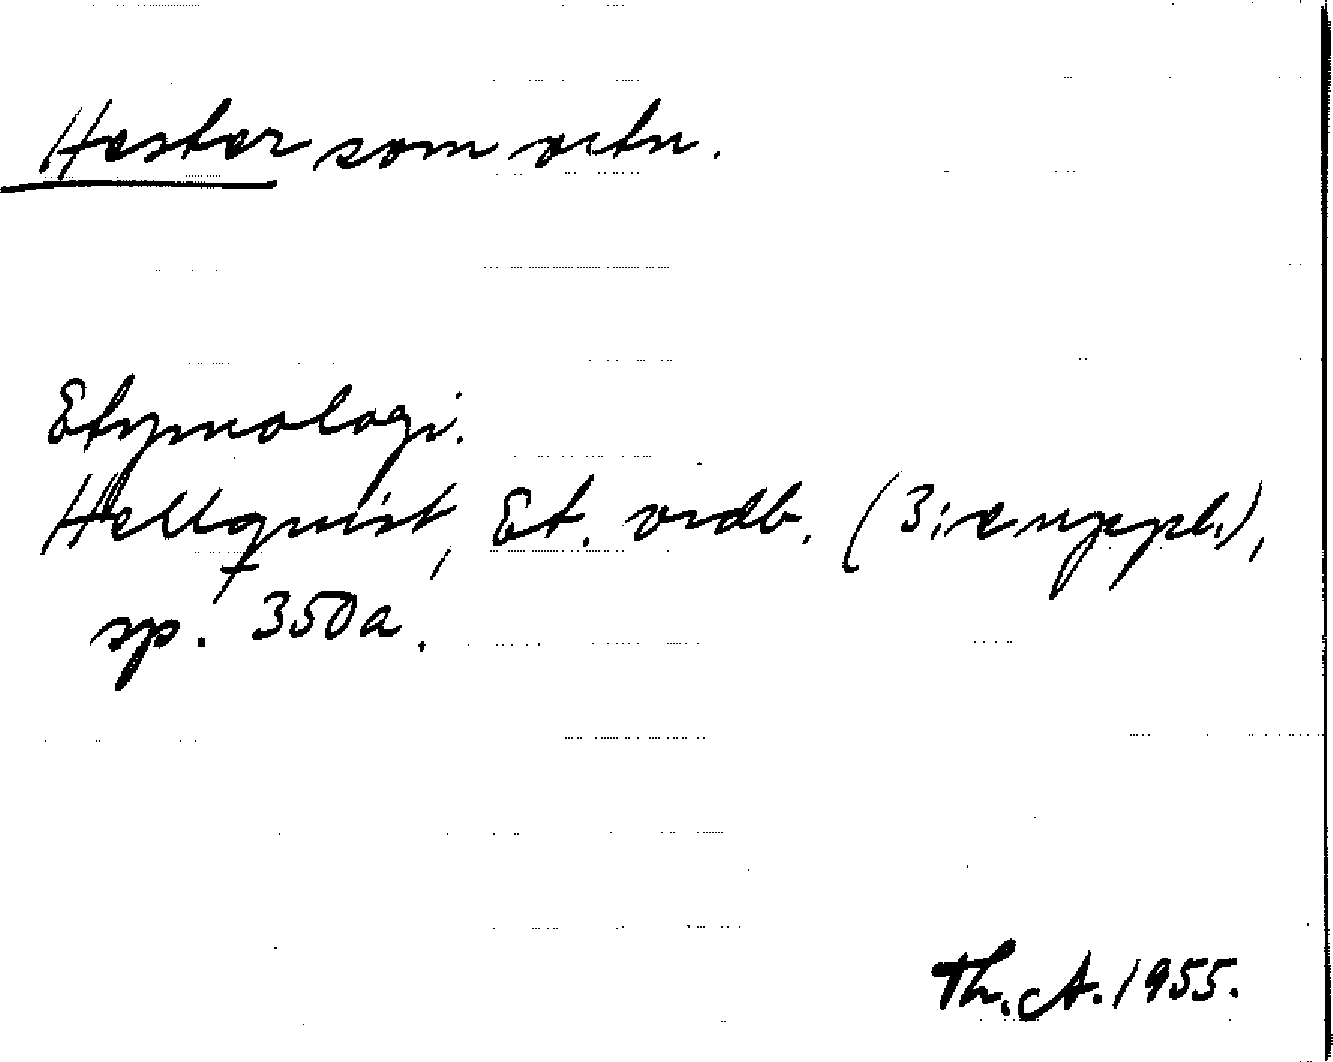 Hester som ortn.
Etymologi.
Hellquist, Et. ordb. (3:e uppl.),
sp. 350a.
Th. A. 1955.